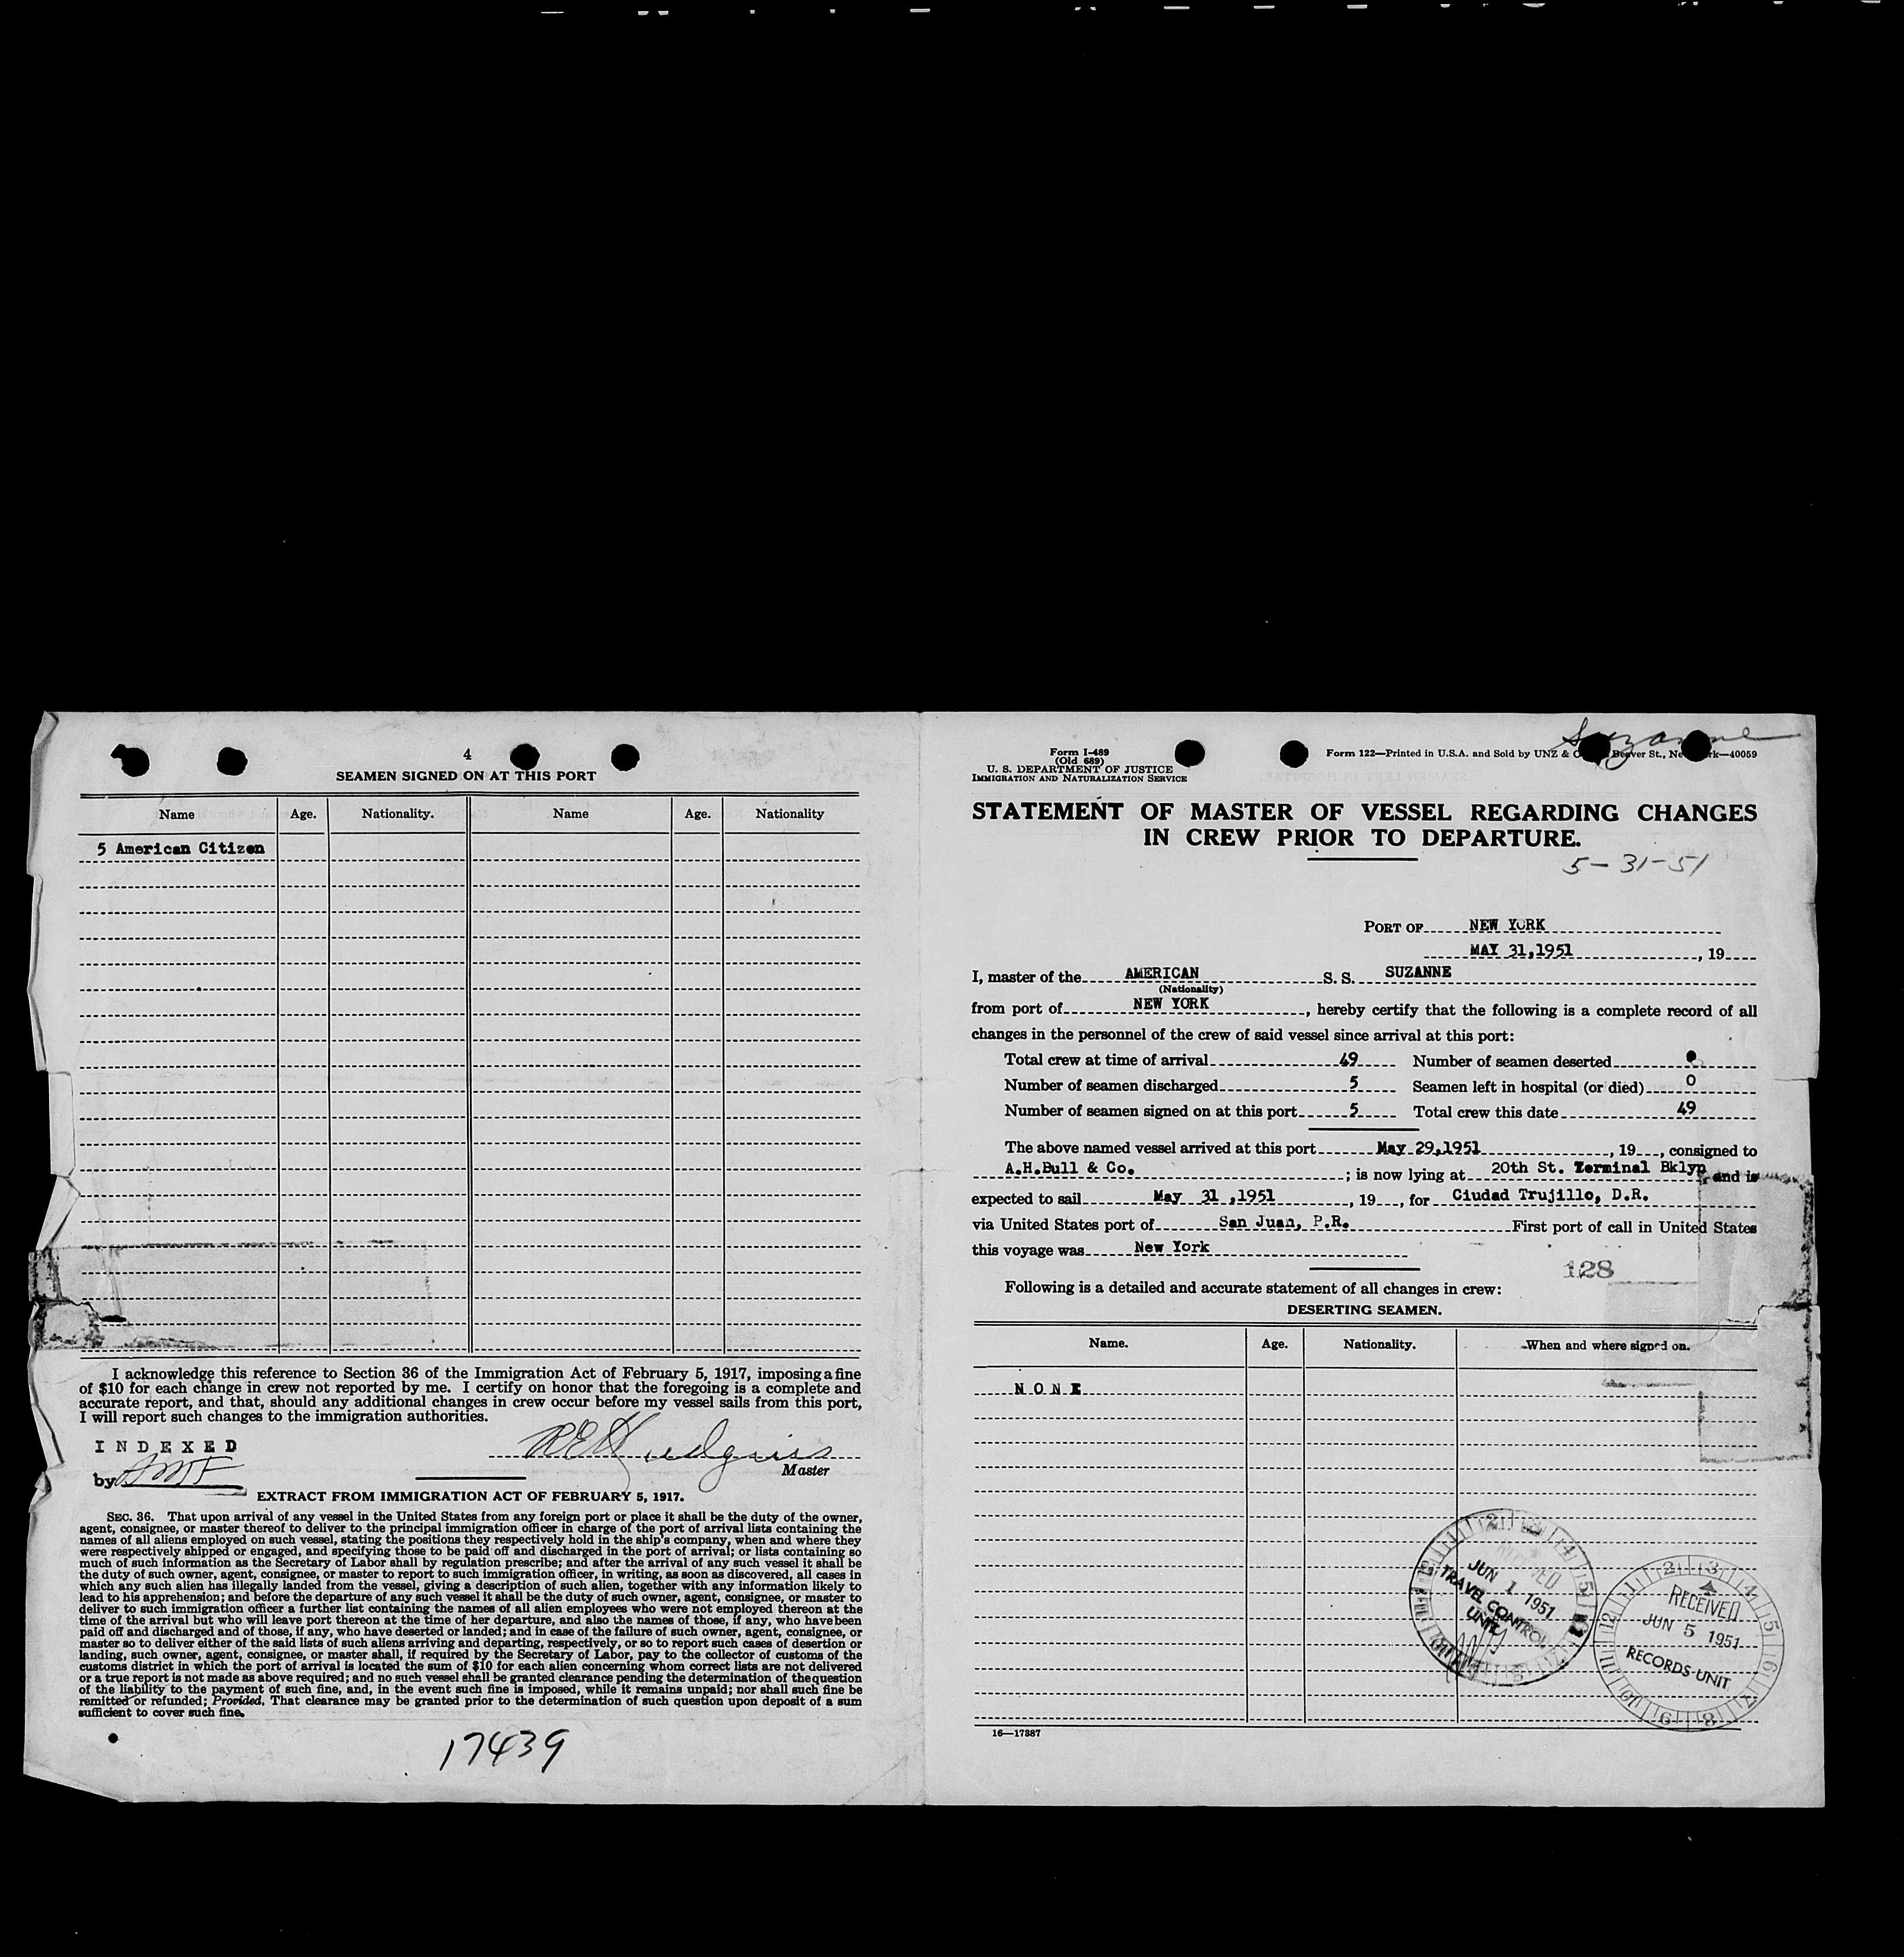 4
SEAMEN SIGNED ON AT THIS PORT
Name Age. Nationality. Name Age. Nationality
5 American Citizen
I acknowledge this reference to Section 36 of the Immigration Act of February 5, 1917, imposing a fine
of $10 for each change in crew not reported by me. I certify on honor that the foregoing is a complete and
accurate report, and that, should any additional changes in crew occur before my vessel sails from this port,
I will report such changes to the immigration authorities.
INDEXED
by
Master
EXTRACT FROM IMMIGRATION ACT OF FEBRUARY 5, 1917.
SEC. 36. That upon arrival of any vessel in the United States from any foreign port or place it shall be the duty of the owner,
agent, consignee, or master thereof to deliver to the principal immigration officer in charge of the port of arrival lists containing the
names of all aliens employed on such vessel, stating the positions they respectively hold in the ship's company, when and where they
were respectively shipped or engaged, and specifying those to be paid off and discharged in the port of arrival; or lists containing so
much of such information as the Secretary of Labor shall by regulation prescribe; and after the arrival of any such vessel it shall be
the duty of such owner, agent, consignee, or master to report to such immigration officer, in writing, as soon as discovered, all cases in
which any such alien has illegally landed from the vessel, giving a description of such alien, together with any information likely to
lead to his apprehension; and before the departure of any such vessel it shall be the duty of such owner, agent, consignee, or master to
deliver to such immigration officer a further list containing the names of all alien employees who were not employed thereon at the
time of the arrival but who will leave port thereon at the time of her departure, and also the names of those, if any, who have been
paid off and discharged and of those, if any, who have deserted or landed; and in case of the failure of such owner, agent, consignee, or
master so to deliver either of the said lists of such aliens arriving and departing, respectively, or so to report such cases of desertion or
landing, such owner, agent, consignee, or master shall, if required by the Secretary of Labor, pay to the collector of customs of the
customs district in which the port of arrival is located the sum of $10 for each alien concerning whom correct lists are not delivered
or a true report is not made as above required; and no such vessel shall be granted clearance pending the determination of the question
of the liability to the payment of such fine, and, in the event such fine is imposed, while it remains unpaid; nor shall such fine be
remitted or refunded; Provided, That clearance may be granted prior to the determination of such question upon deposit of a sum
sufficient to cover such fine.
17439
Suzanne
Form I-489
(Old 689)
U. S. DEPARTMENT OF JUSTICE
IMMIGRATION AND NATURALIZATION SERVICE
Form 122—Printed in U.S.A. and Sold by UNZ & Beaver St., —40059
STATEMENT OF MASTER OF VESSEL REGARDING CHANGES
IN CREW PRIOR TO DEPARTURE.
5-31-51
PORT OF NEW YORK
MAY 31,1951, 19
I, master of the AMERICAN S. S. SUZANNE
(Nationality)
from port of NEW YORK, hereby certify that the following is a complete record of all
changes in the personnel of the crew of said vessel since arrival at this port:
Total crew at time of arrival 49 Number of seamen deserted
Number of seamen discharged 5 Seamen left in hospital (or died) 0
Number of seamen signed on at this port 5 Total crew this date 49
The above named vessel arrived at this port May 29,1951, 19, consigned to
A.H.Bull & Co.; is now lying at 20th St. Terminal Bklyn, and is
expected to sail May 31 ,1951, 19, for Ciudad Trujillo, D.R.
via United States port of San Juan, P.R. First port of call in United States
this voyage was New York
128
Following is a detailed and accurate statement of all changes in crew:
DESERTING SEAMEN.
Name. Age. Nationality. When and where signed on.
NONE
JUN 1 1951
TRAVEL CONTROL
UNIT
RECEIVED
JUN 5 1951
RECORDS UNIT
16—17887